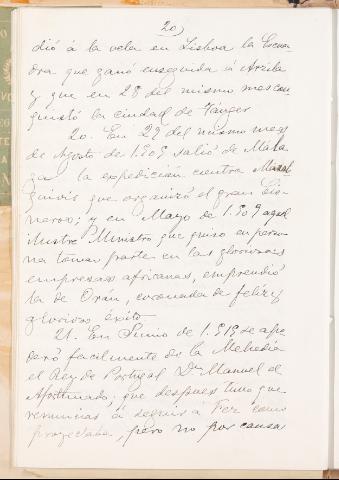 20)
dió á la vela en Lisboa la Escua
dra que ganó enseguida á Arzila
y que en 28 del mismo mes con
quistó la ciudad de Tánger
20. En 29 del mismo mes
de Agosto de 1.505 salió de Mála
ga la expedición contra Mazal
quivir que organizó el gran Cis
neros; y en Mayo de 1.509 aquel
ilustre Ministro que quiso en perso
na tomar parte en las gloriosas
empresas africanas, emprendió
la de Orán, coronada de feliz y
glorioso éxito
21. En Junio de 1.515 se apo
deró facilmente de la Mehedia
el Rey de Portugal Dn Manuel el
Afortunado; que despues tuvo que
renunciar á seguir á Fez como
proyectaba, pero no por causa